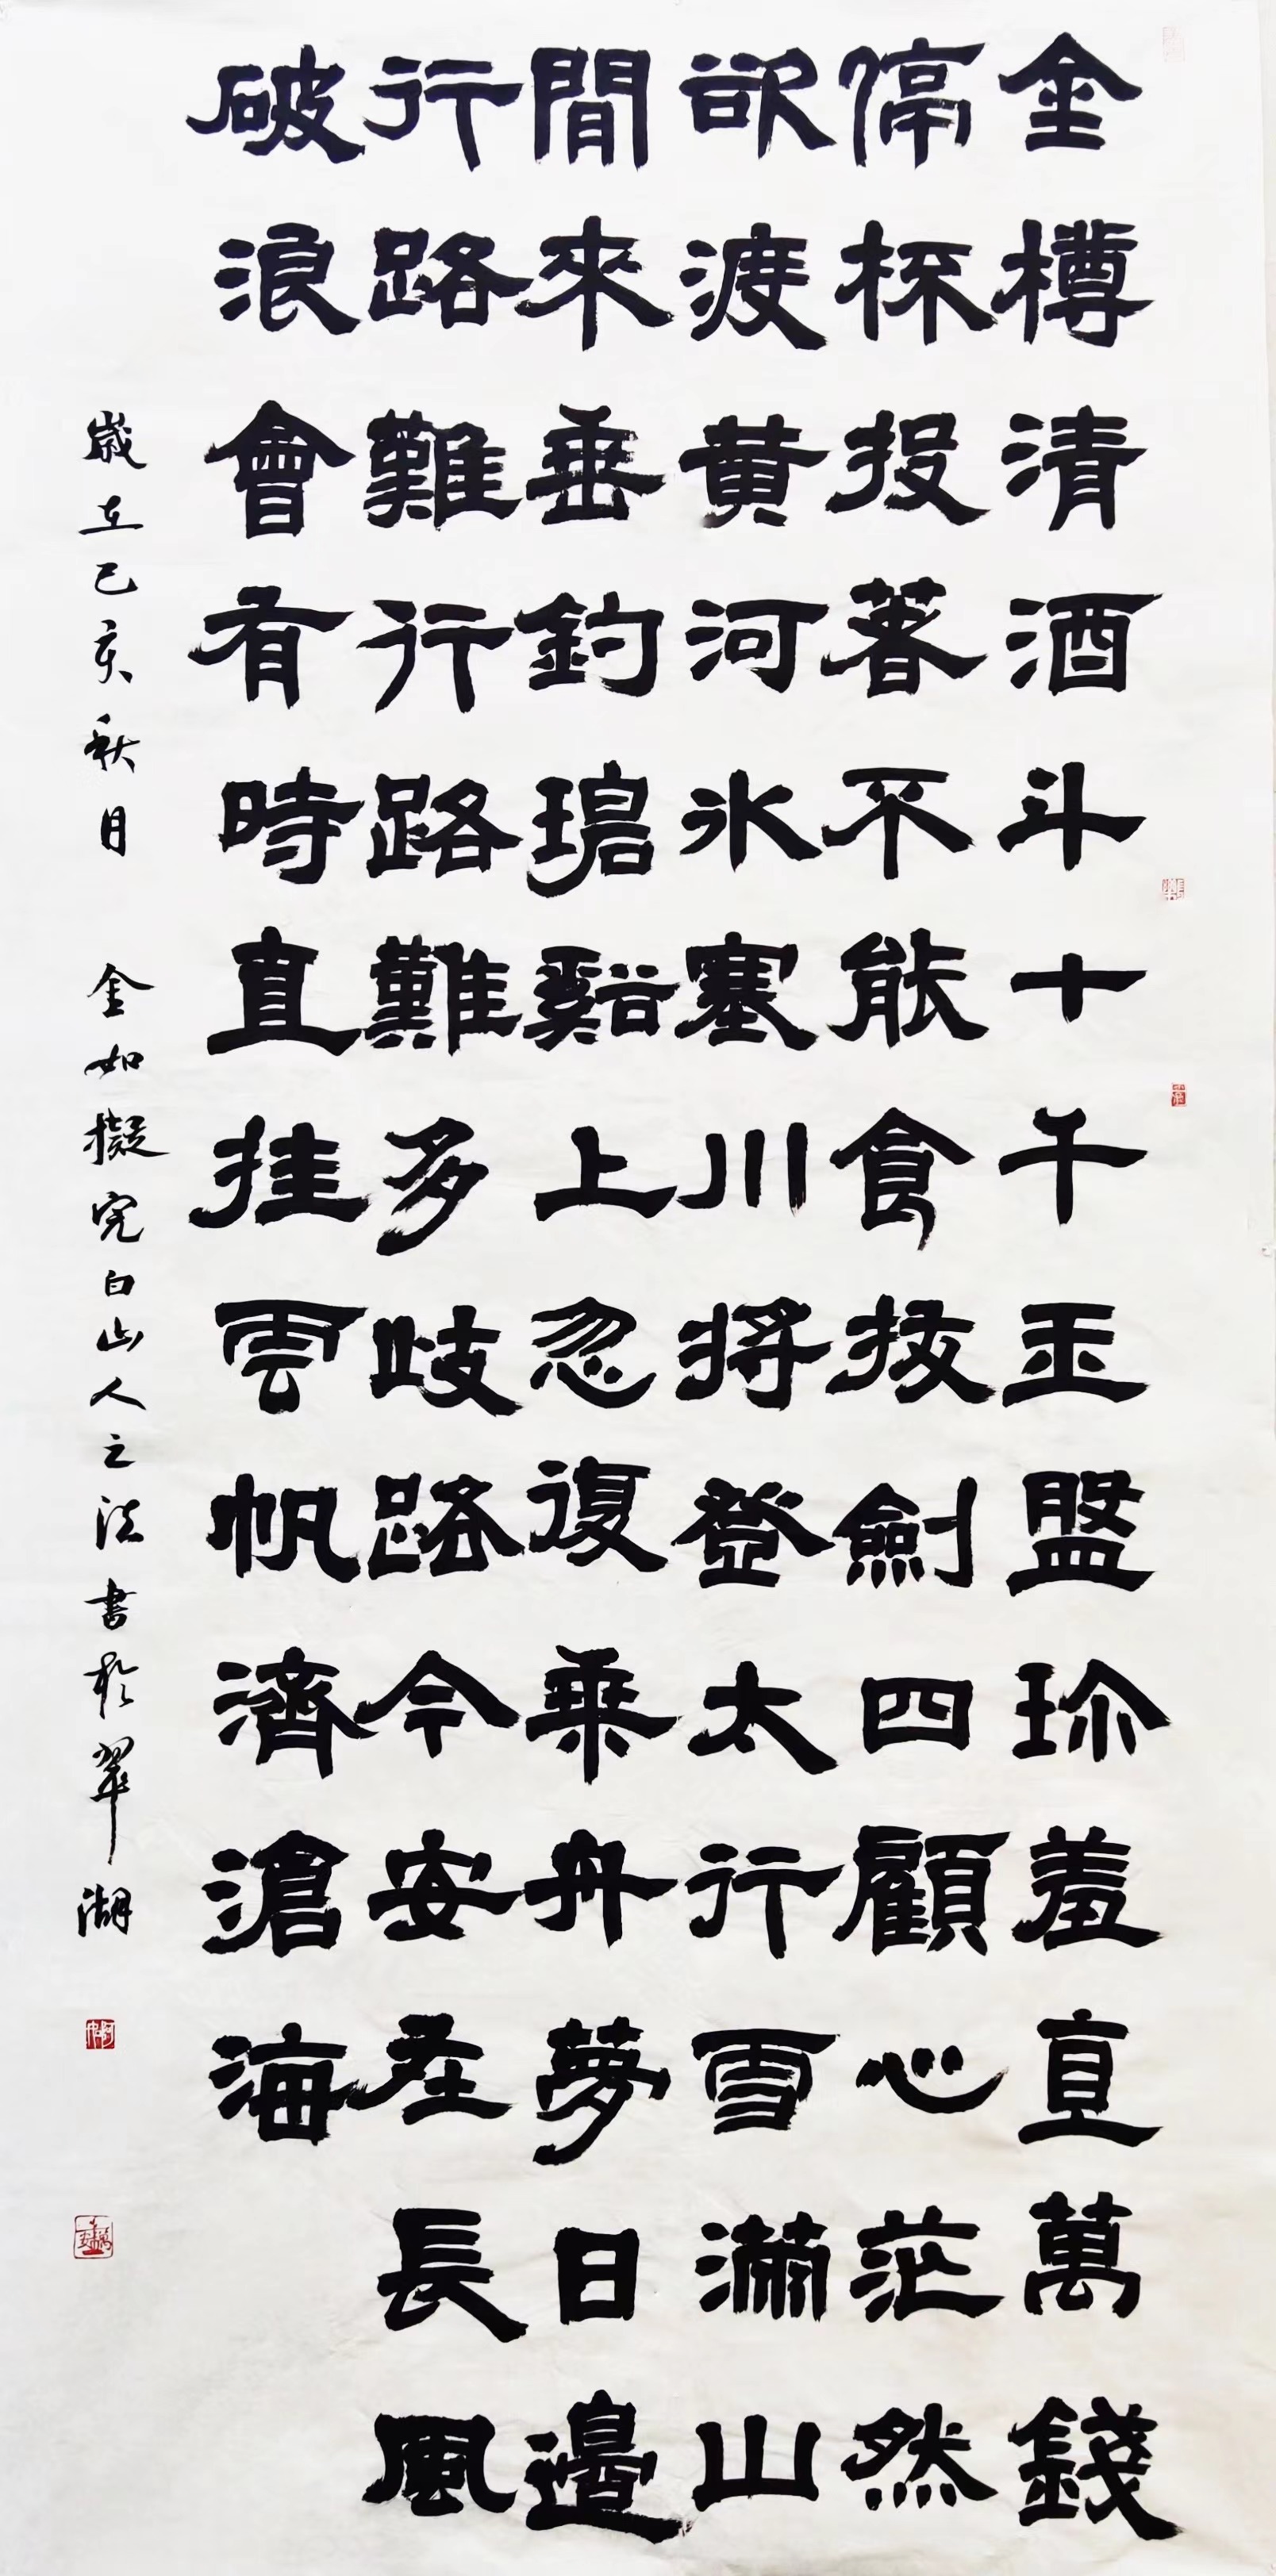 金樽清酒斗十千玉盤珎羞直萬錢
停杯投箸不能食拔劍四顧心茫然
欲渡黃河氷塞川將登太行雪滿山
閒來垂釣碧谿上忽復乘舟夢日邊
行路難行路難多歧路今安在長風
破浪會有時直挂雲帆濟滄海
歲在己亥秋月 金如擬完白山人之法書於翠湖